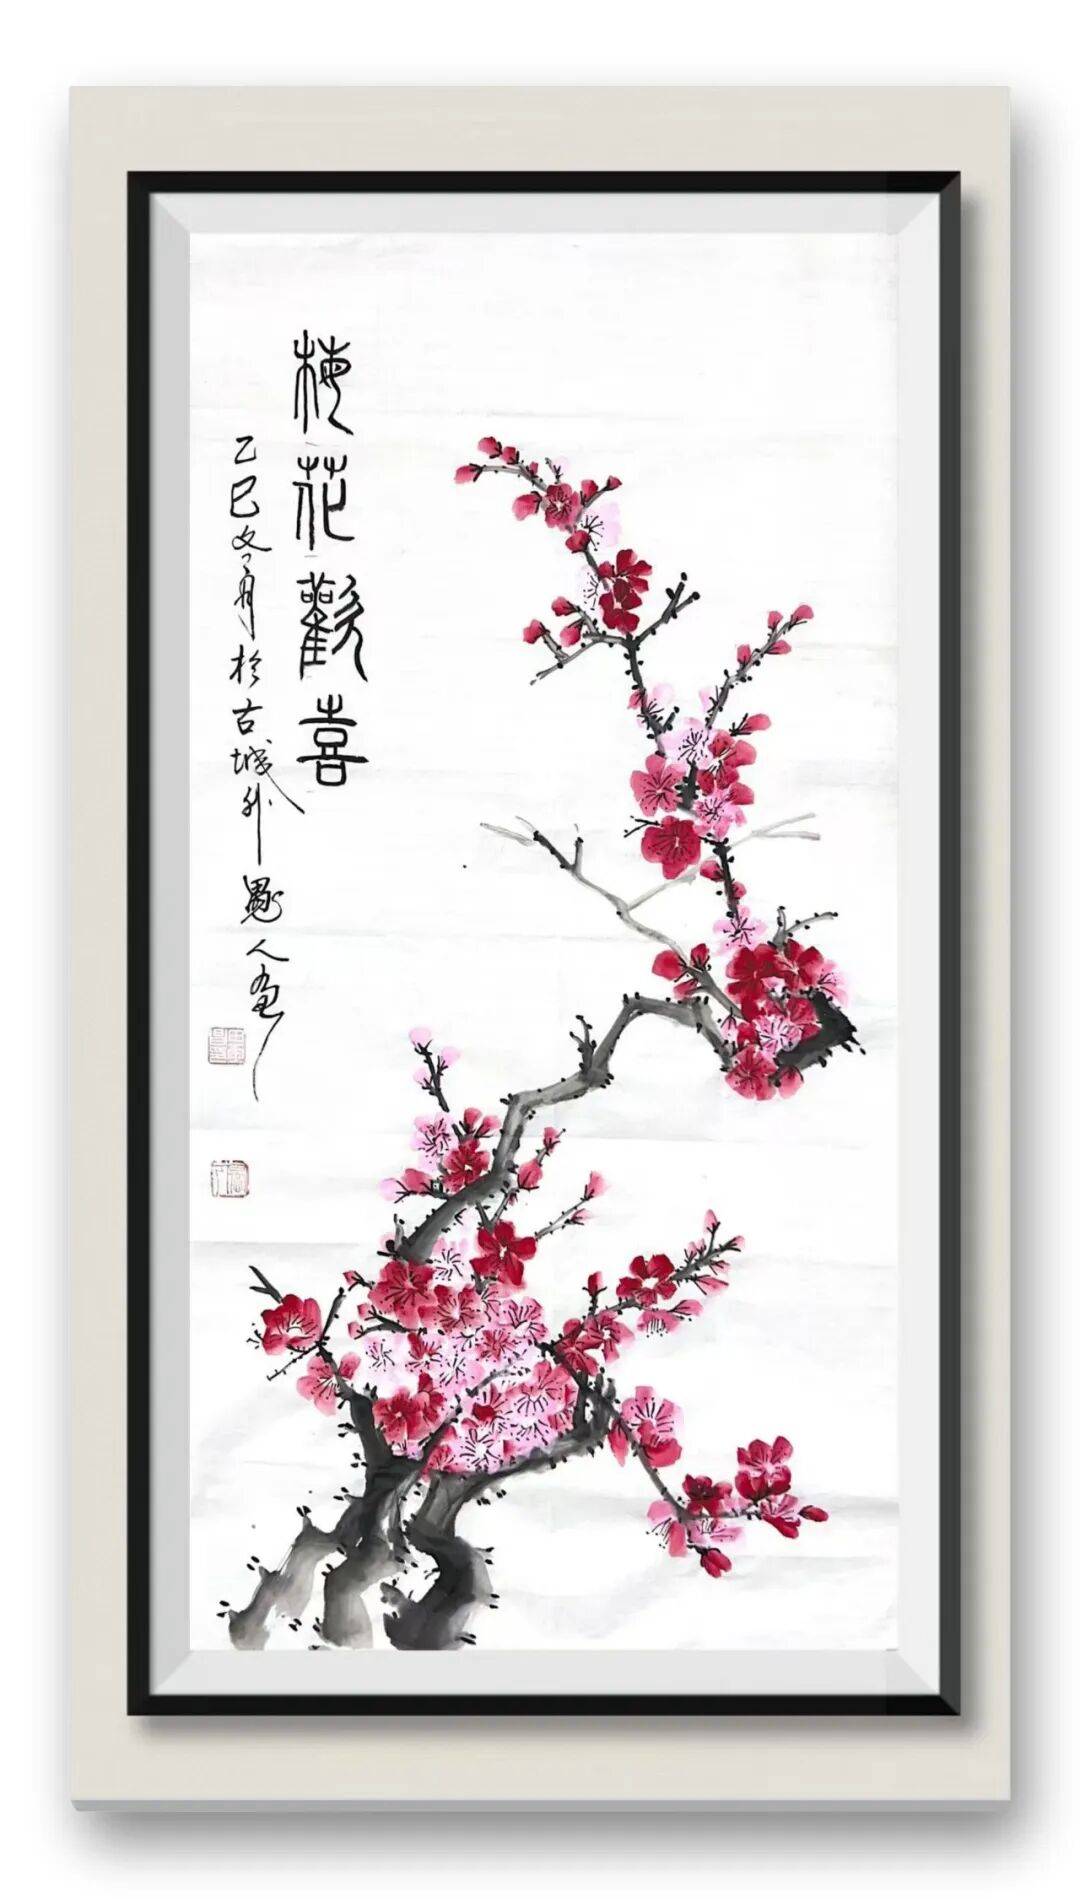 梅花歡喜
乙巳冬月於古城外愚人画